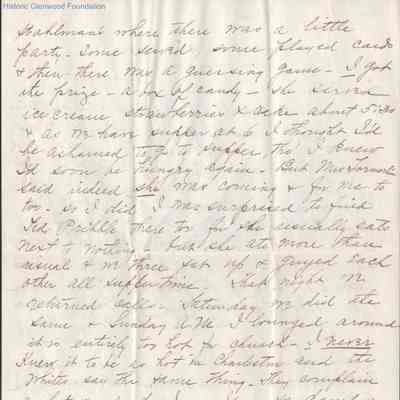 Historic Glenwood Foundation
Stahlman's where there was a little
party. Some sewed, some played cards
& then there was a guessing game - I got
the prize - a box of candy - She served
ice cream, strawberries & cake about 5:30
& as we have supper at 6 I thought I'd
be ashamed to go to supper tho' I knew
I'd soon be hungry again - But Mrs
said indeed she was coming & for me to
too - so I did. I was surprised to find
Ted Pribble there too for she usually eats
next to nothing - but she ate more than
usual & we three sat up & guyed each
other all supper time. That night we
returned calls - Saturday we did the
same & Sunday A.M. I lounged around
it is entirely too hot for church - I never
knew it to be so hot in Charleston and the
Whites say the same thing - They complain